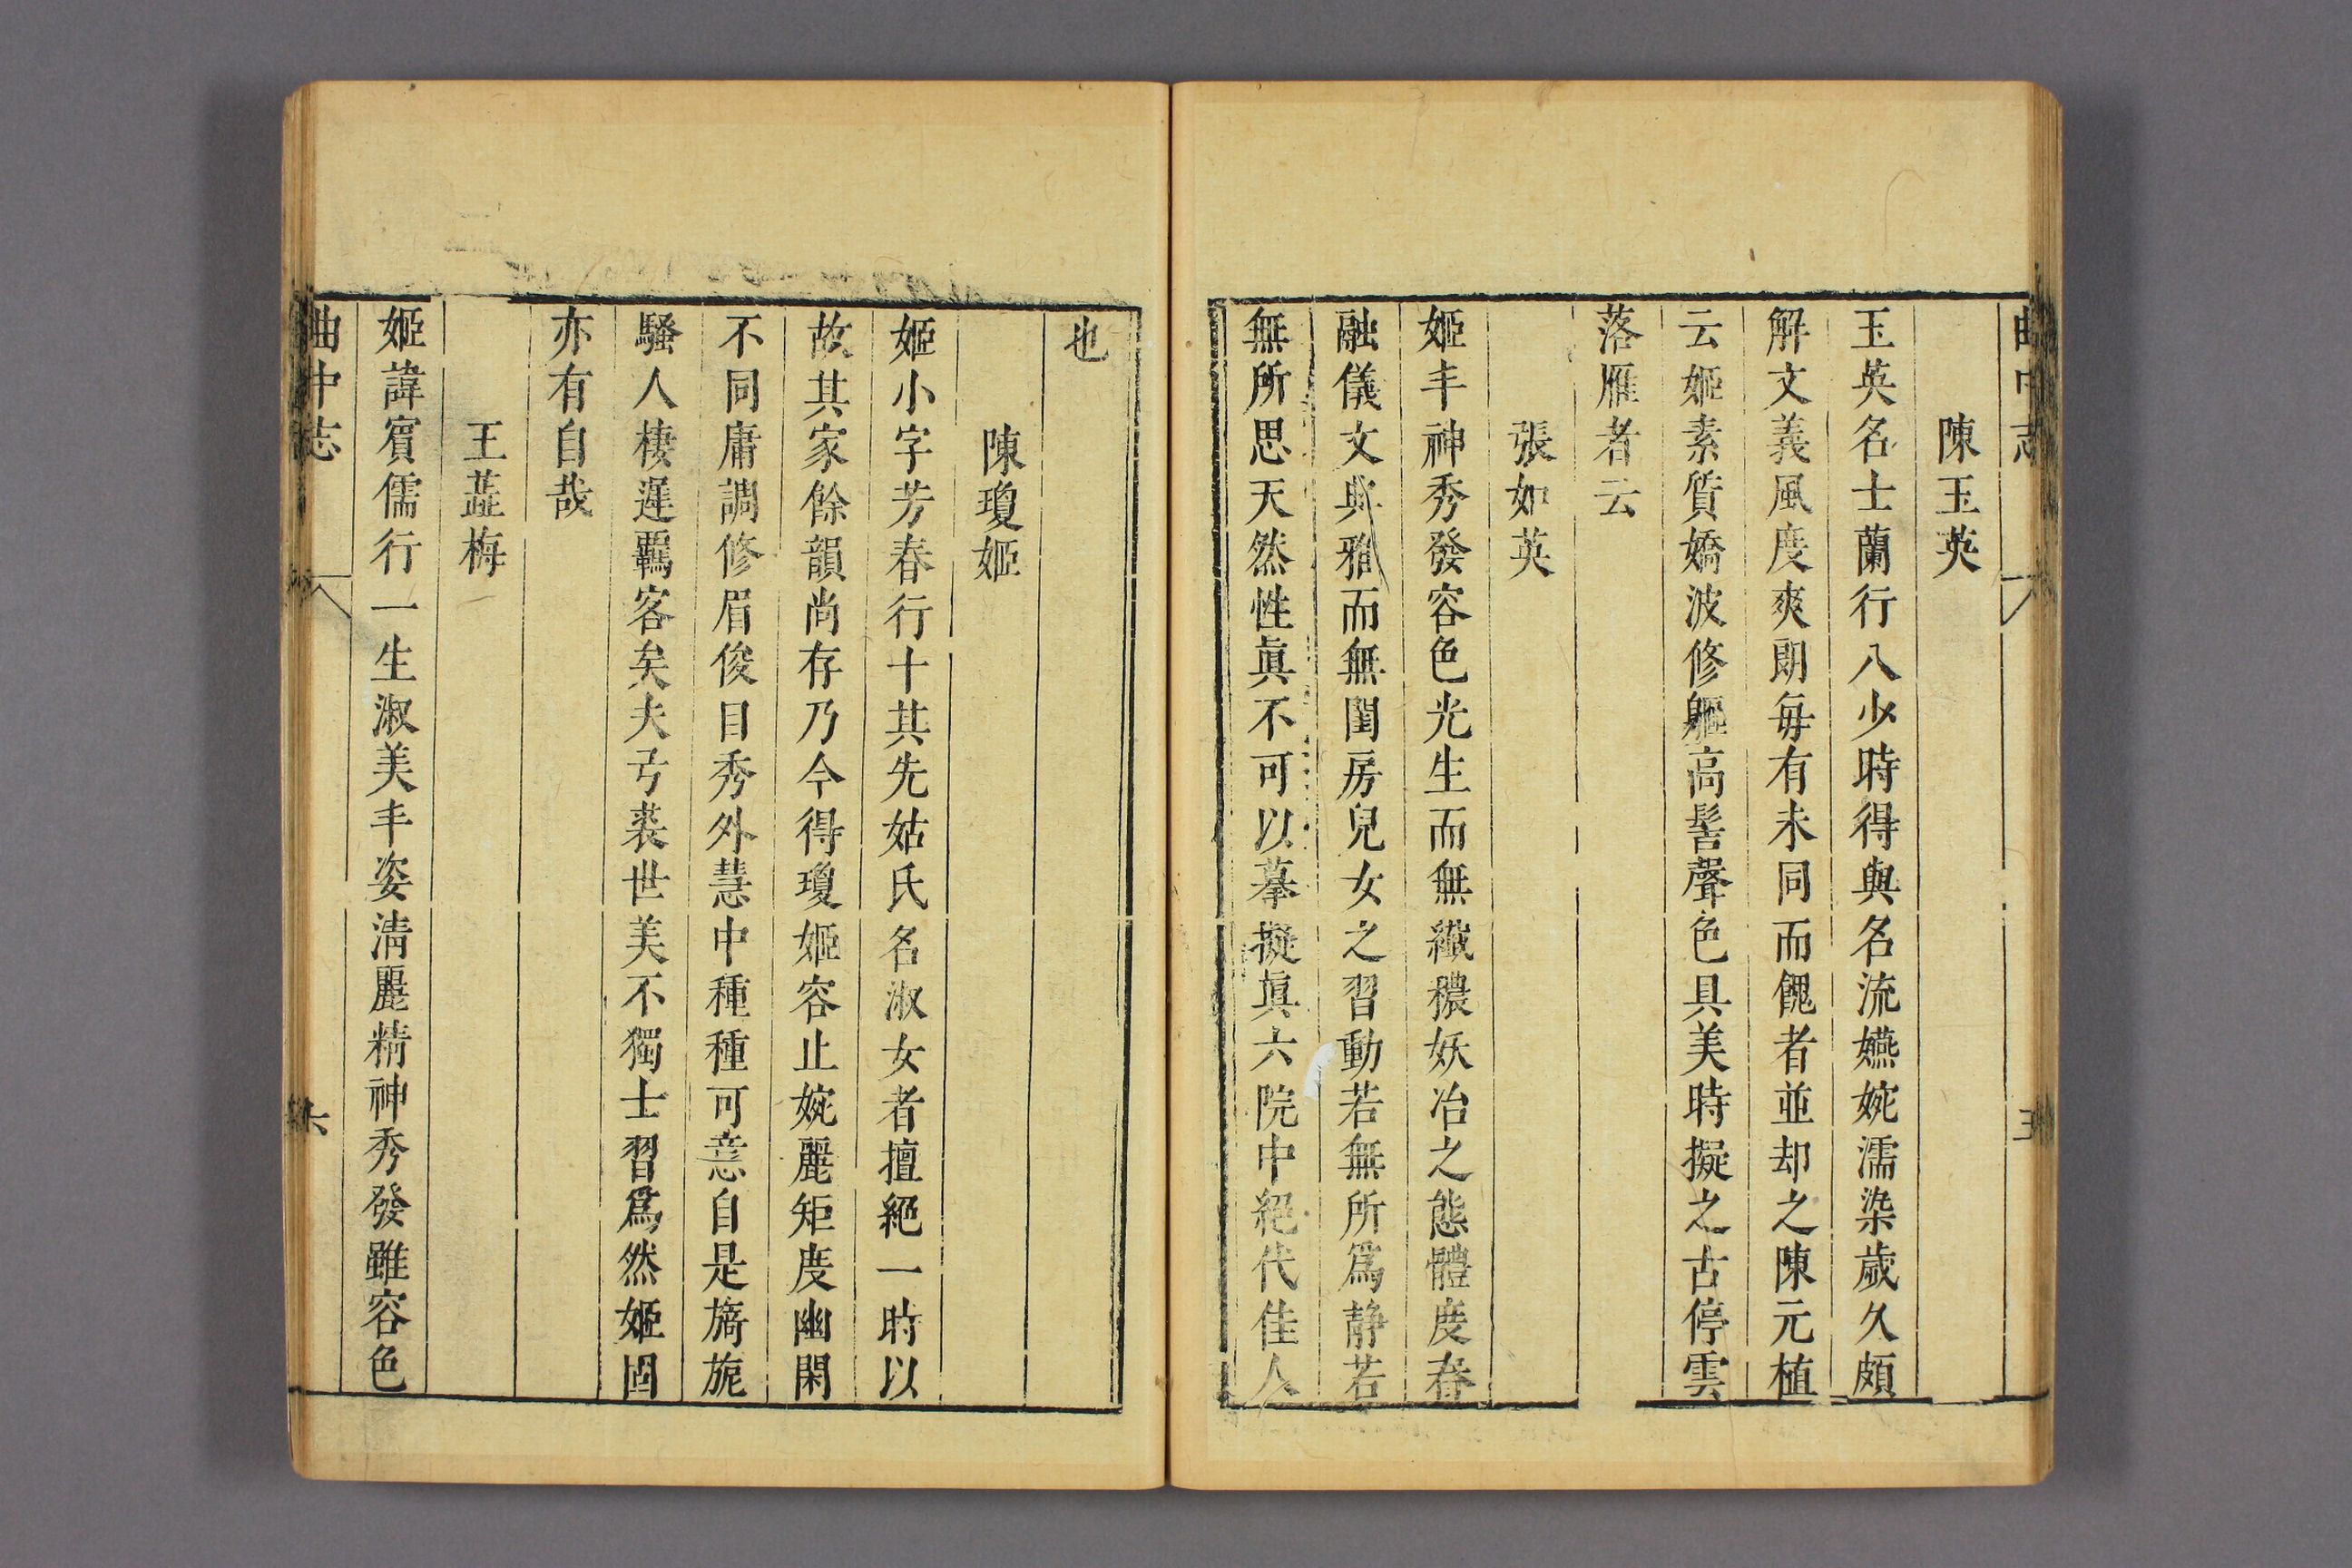 曲中志
陳玉英
玉英名士蘭行八少時得與名流嬿婉濡染歲久頗
解文義風度爽朗每有未同而餽者並却之陳元植
云姬素質嬌波修軀高髻聲色具美時擬之古停雲
落雁者云
張如英
姬丰神秀發容色光生而無纖穠妖冶之態體度春
融儀文典雅而無閨房兒女之習動若無所爲静若
無所思天然性眞不可以摹擬眞六院中絕代佳人
也
陳瓊姬
姬小字芳春行十其先姑氏名淑女者擅絕一時以
故其家餘韻尚存乃今得瓊姬容止婉麗矩度幽閑
不同庸調修眉俊目秀外慧中種種可意自是旖旎
騷人棲遲羈客矣夫弓裘世美不獨士習爲然姬固
亦有自哉
王蕋梅
姬諱賓儒行一生淑美丰姿淸麗精神秀發雖容色
曲中志
六